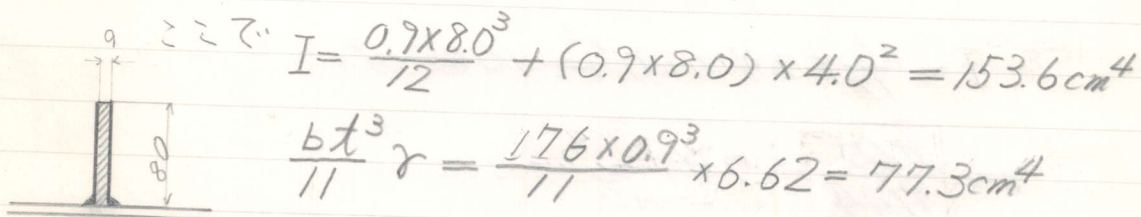 ここで I = \frac{0.9×8.0^3}{12} + (0.9×8.0)×4.0^2 = 153.6 cm^4
9
80
\frac{bt^3}{11} γ = \frac{176×0.9^3}{11} ×6.62 = 77.3 cm^4